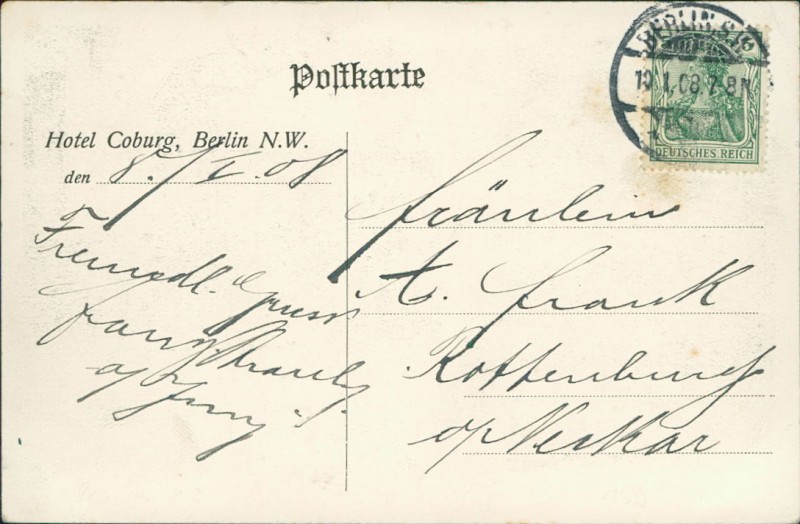 Postkarte
BERLIN S
1.08.7-8N
DEUTSCHES REICH
Hotel Coburg, Berlin N.W.
den 8./I.08
Freundl. Gruss
Fräulein
A. Frank
Rottenburg
a/Neckar